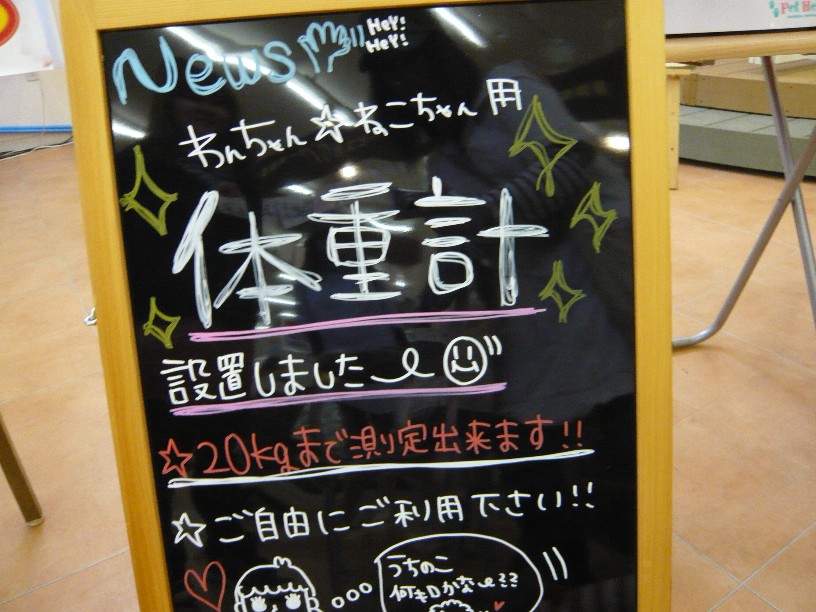 News Hey! Hey!
わんちゃん☆ねこちゃん用
体重計
設置しました
☆20kgまで測定出来ます!!
☆ご自由にご利用下さい!!
うちのこ
何キロかな〜??
Pet He